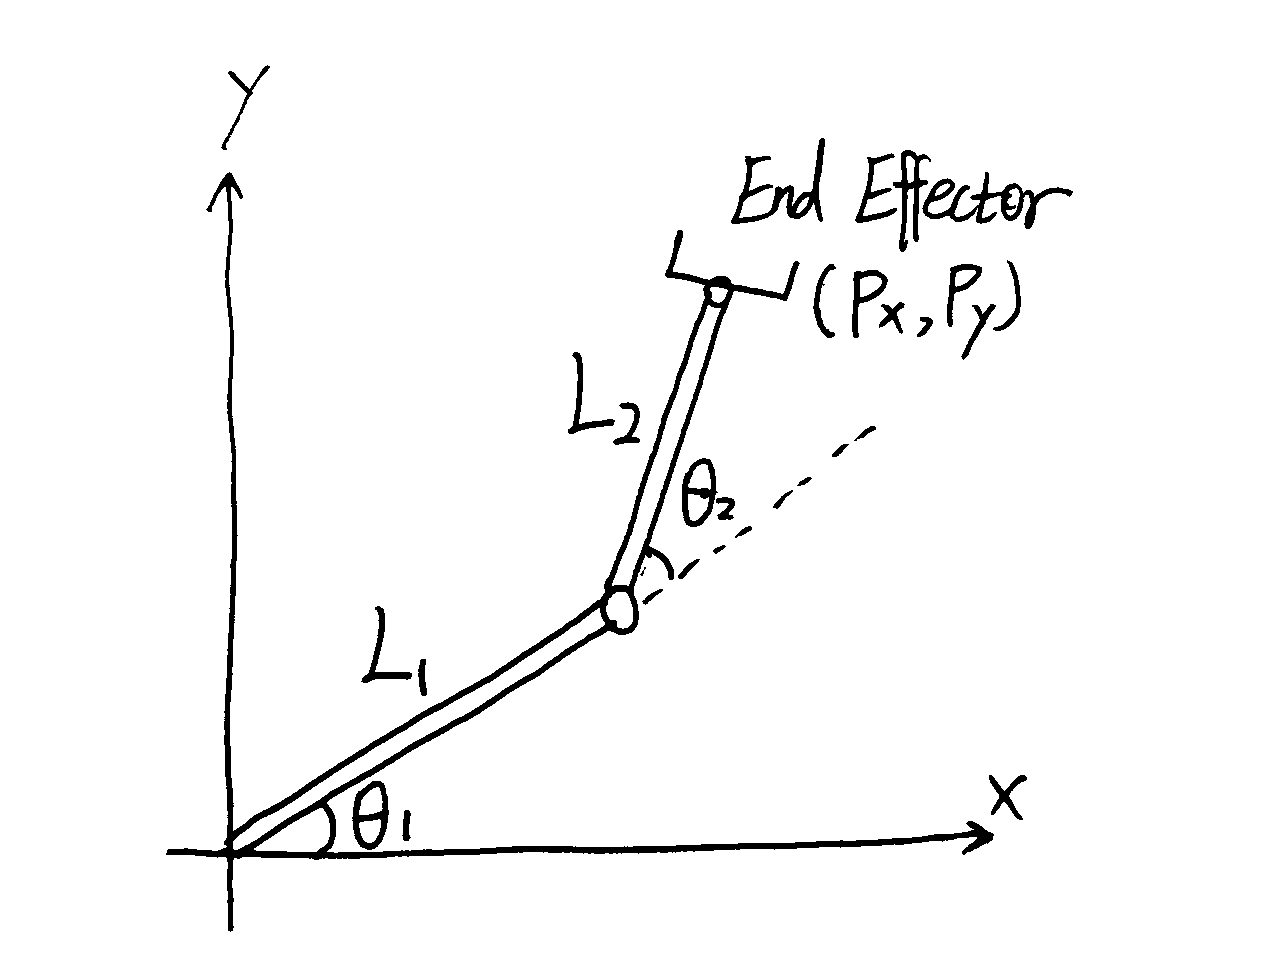 Y
End Effector
(Px, Py)
L2
θ2
L1
θ1
X